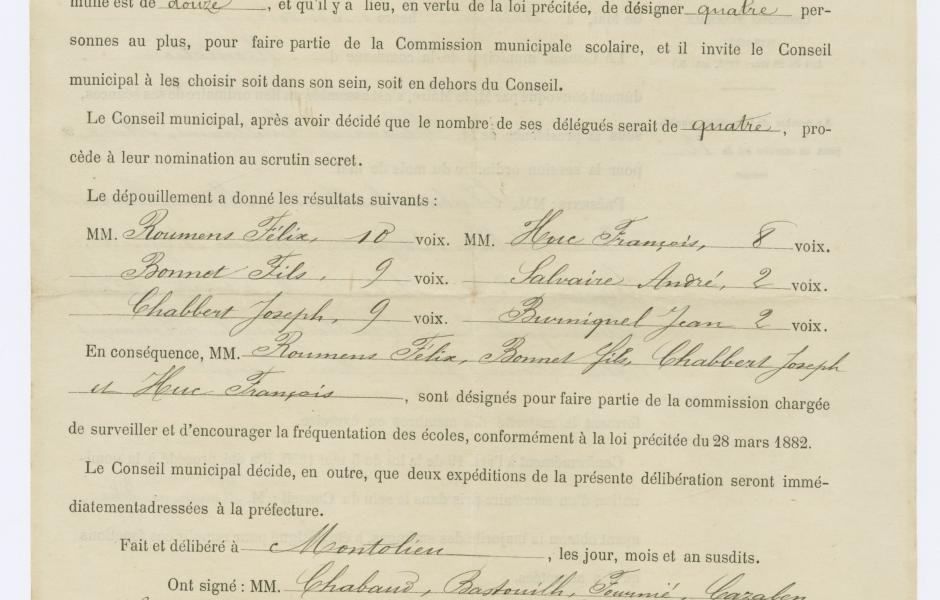 mune est de douze, et qu'il y a lieu, en vertu de la loi précitée, de désigner quatre per-
sonnes au plus, pour faire partie de la Commission municipale scolaire, et il invite le Conseil
municipal à les choisir soit dans son sein, soit en dehors du Conseil.
Le Conseil municipal, après avoir décidé que le nombre de ses délégués serait de quatre, pro-
cède à leur nomination au scrutin secret.
Le dépouillement a donné les résultats suivants :
MM. Roumens Félix, 10 voix. MM. Huc François, 8 voix.
Bonnet Fils, 9 voix. Salvaire André, 2 voix.
Chabbert Joseph, 9 voix. Burniquel Jean 2 voix.
En conséquence, MM. Roumens Félix, Bonnet fils, Chabbert Joseph
et Huc François, sont désignés pour faire partie de la commission chargée
de surveiller et d'encourager la fréquentation des écoles, conformément à la loi précitée du 28 mars 1882.
Le Conseil municipal décide, en outre, que deux expéditions de la présente délibération seront immé-
diatementadressées à la préfecture.
Fait et délibéré à Montolieu, les jour, mois et an susdits.
Ont signé : MM. Chabaud, Bastouilh, Fournié, Cazaben